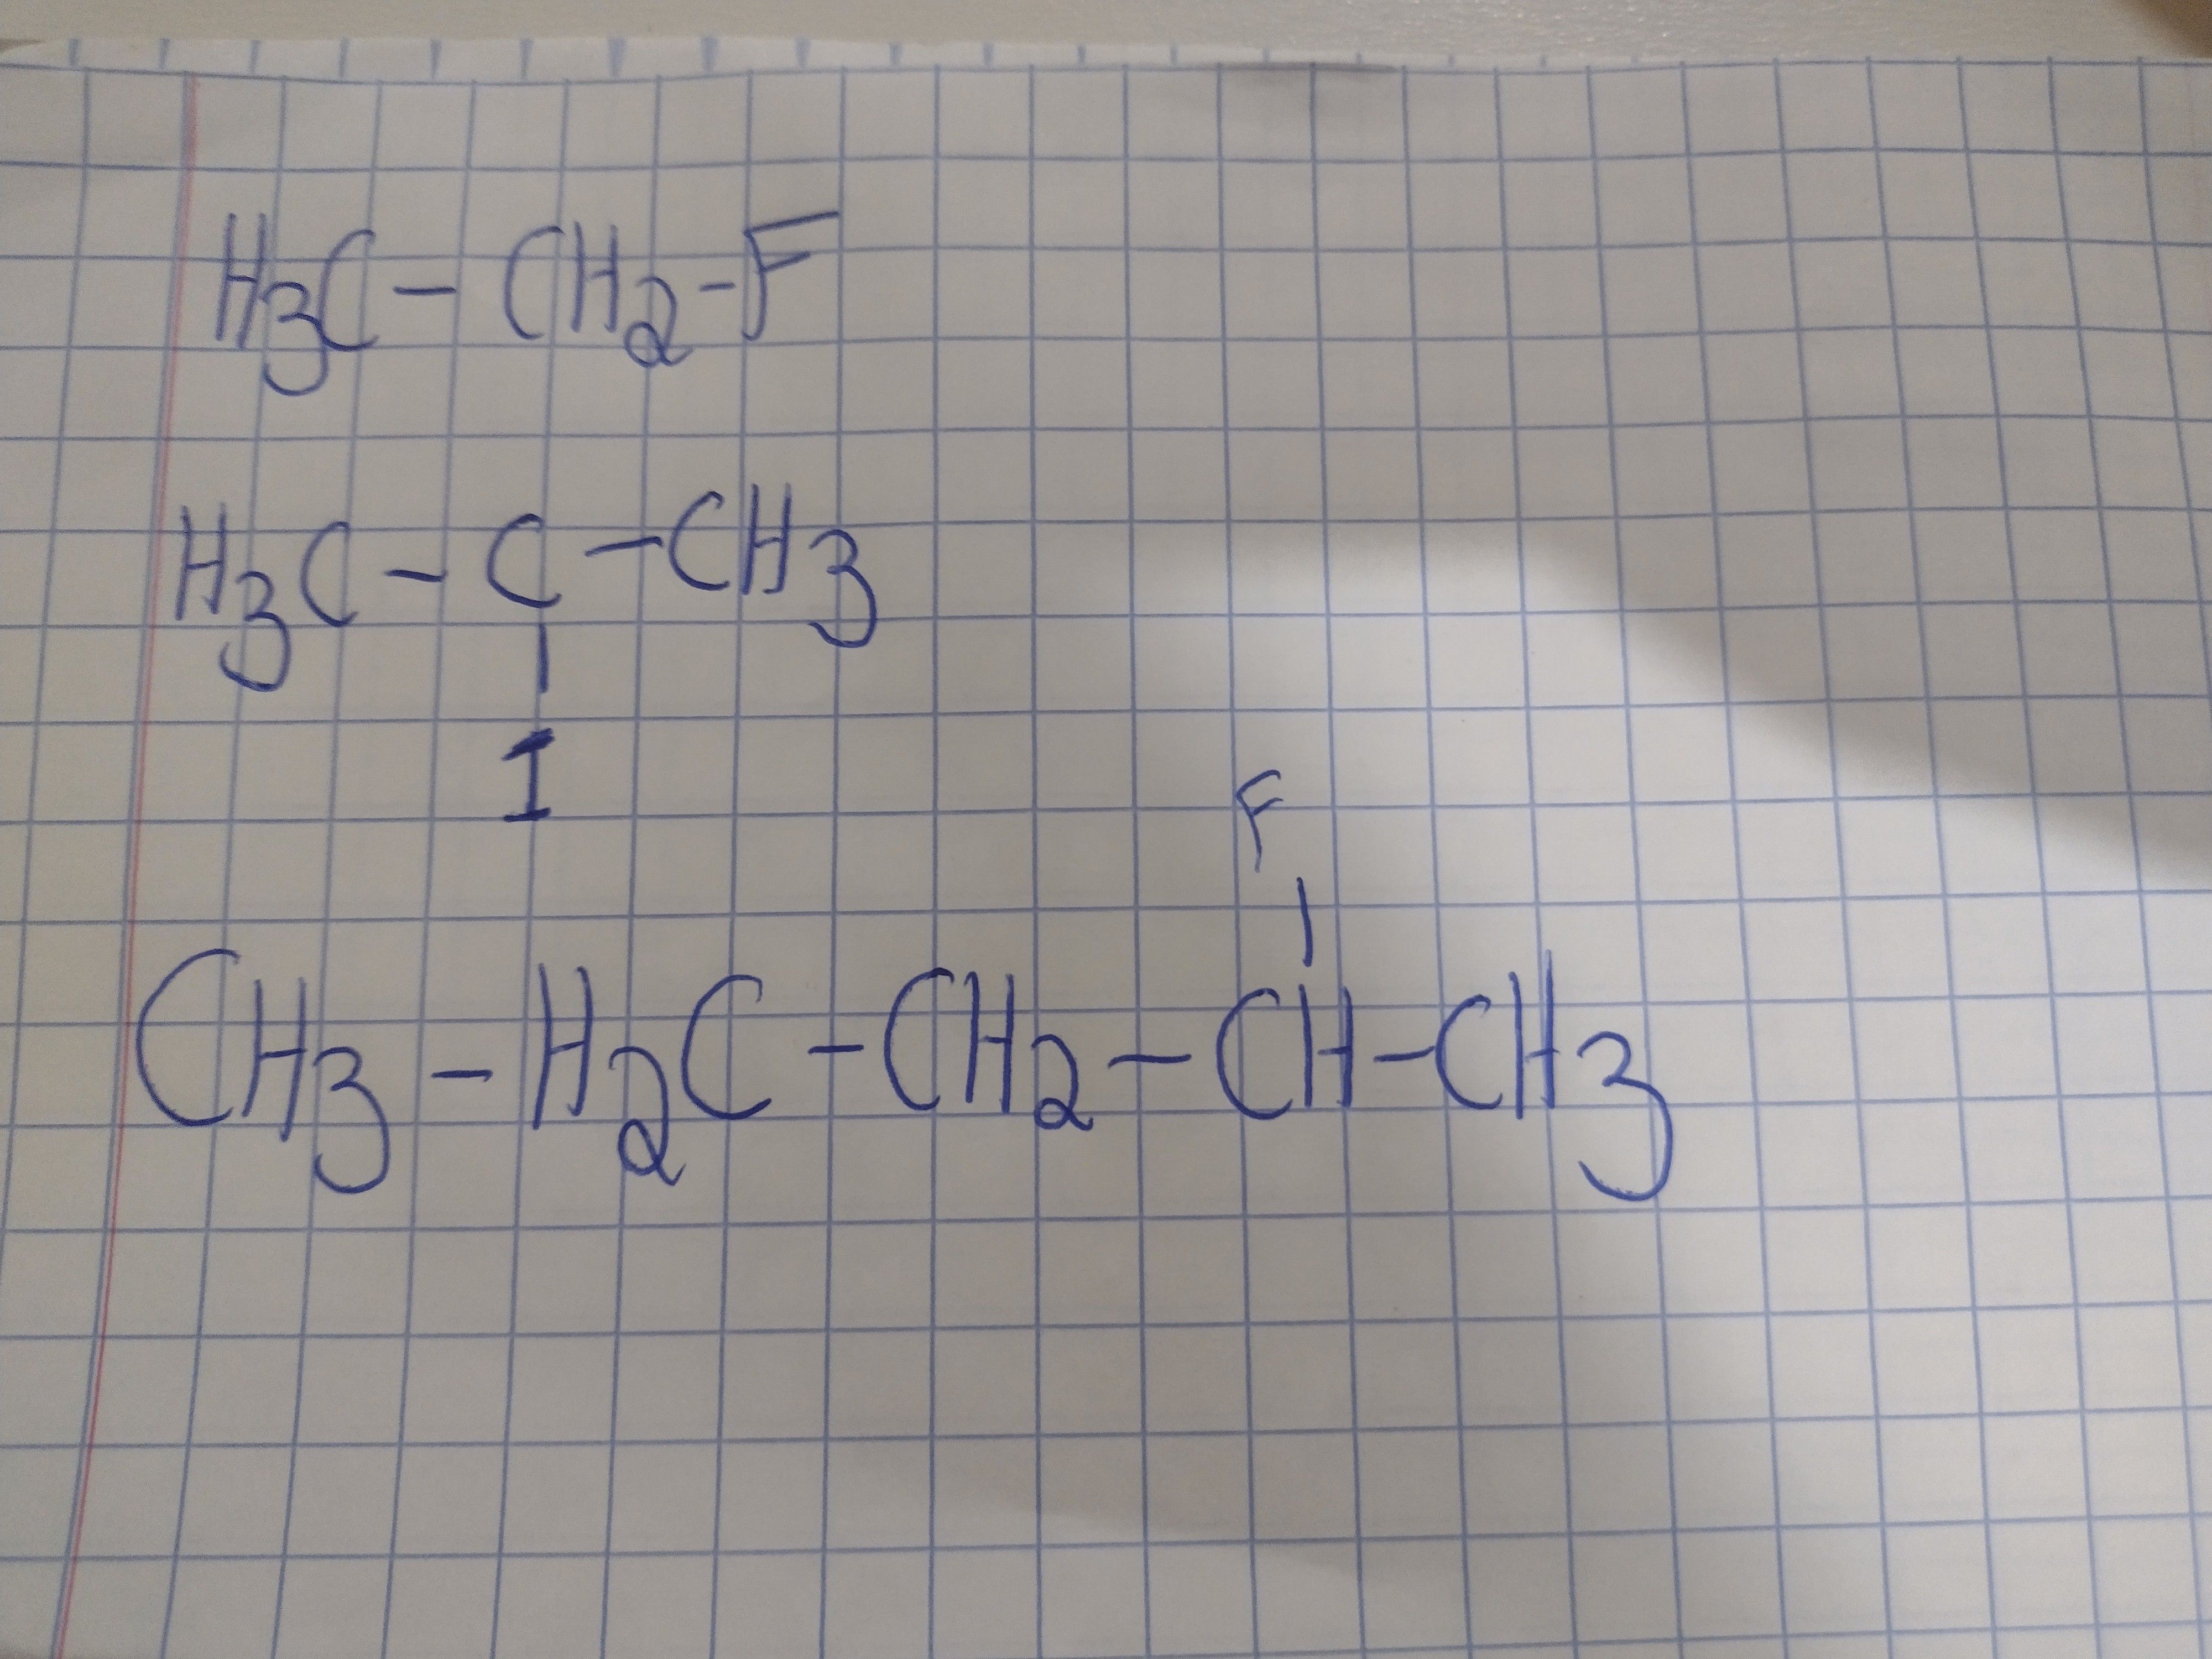 H3C - CH2 - F
H3C - C - CH3
|
I
F
|
CH3 - H2C - CH2 - CH - CH3